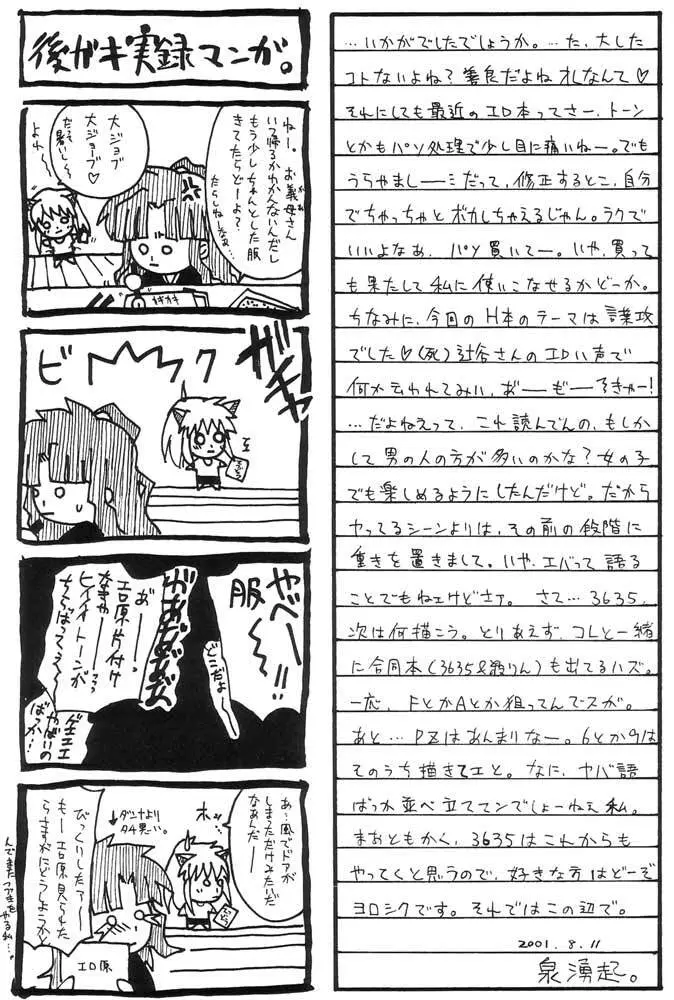 後ガキ実録マンガ。
ねー。お義母さん
いつ帰るかわかんないんだし
もう少しちゃんとした服
きてたらどーよ?
だらしねえなぁ…
大ジョブ
大ジョブ♡
だって暑いしぃ。
よれ〜
ガチャ
ビクッ
やべー!!
服ー
どこだよ
があああああ
あ"ーっ
エロ原片付け
なきゃーっっ
ヒィィイトーンが
ちらばってるぅー
ゲェエエ
やばいの
ばっか…
あ〜風でドアが
しまっただけみたいだ
なぁんだー
ホッ…
↓ダンナより
タチ悪ーい。
びっくりしたァー
もー エロ原見られた
らさすがにどうしようかと
エロ原
んでまたフツーをやる私…。
…いかがでしたでしょうか。…た、大した
コトないよね?善良だよねオレなんて♡
それにしても最近のエロ本ってさー、トーン
とかもパソ処理で少し目に痛いねー。でも
うらやましーーミだって、修正するとこ、自分
でちゃっちゃとボカしちゃえるじゃん。ラクで
いいよなぁ、パソ買いてー。いや、買って
も果たして私に使いこなせるかどーか。
ちなみに、今回のH本のテーマは言葉攻
でした♡(死)辻谷さんのエロい声で
何か云われてみい、おーーもーーろきゃー!
…だよねえって、これ読んでんの、もしか
して男の人の方が多いのかな?女の子
でも楽しめるようにしたんだけど。だから
ヤッてるシーンよりは、その前の段階に
重きを置きまして。いや、エバって語る
ことでもねェけどさァ。さて…3635、
次は何描こう。とりあえず、コレと一緒
に合同本(3635&殺りん)も出てるハズ。
一応、FとかAとか狙ってんでスが。
あと…PZはあんまりなー。6とか9は
そのうち描きてエと。なに、ヤバ語
ばっか並べ立ててンでしょーねぇ私。
まあともかく、3635はこれからも
やってくと思うので、好きな方はどーぞ
ヨロシクです。それではこの辺で。
2001.8.11
泉湧起。